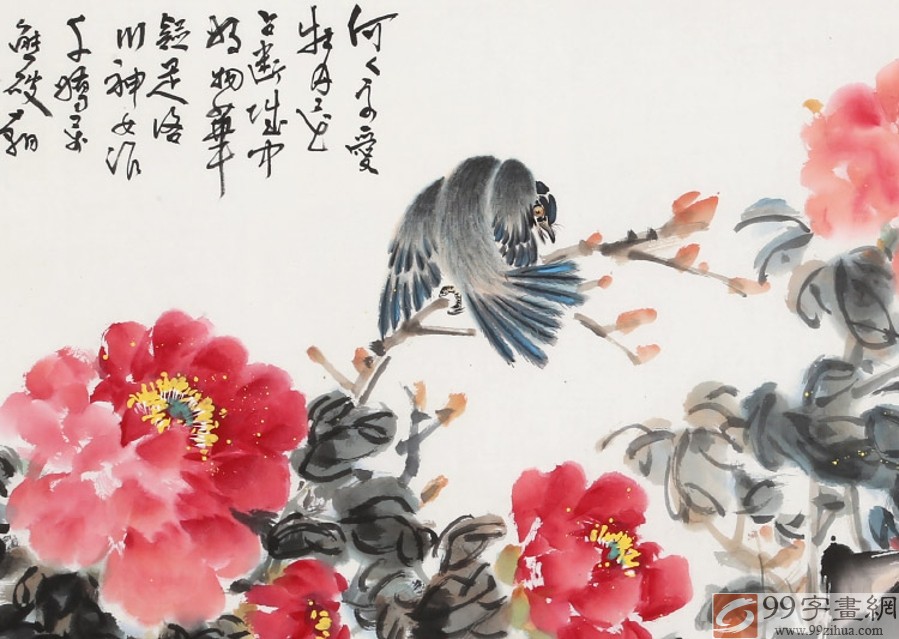 何人不愛
牡丹花
占斷城中
好物華
疑是洛
川神女作
千嬌萬
態破朝
99字畫網
www.99zihua.com